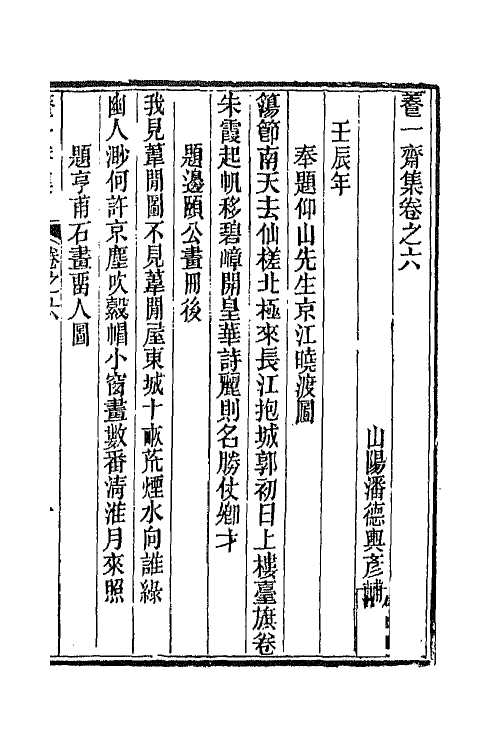 養一齋集卷之六
山陽潘德輿彥輔
壬辰年
奉題仰山先生京江曉渡圖
簜節南天去仙槎北極來長江抱城郭初日上樓臺旗卷
朱霞起帆移碧嶂開皇華詩麗則名勝仗鄉才
題邊頤公畫冊後
我見葦閒圖不見葦閒屋東城十畝荒煙水向誰綠
幽人渺何許京塵吹縠帽小窗畫數番淸淮月來照
題亨甫石畫畱人圖
卷之六